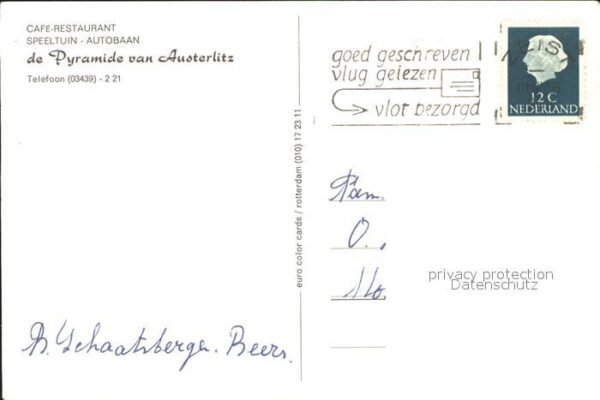 CAFÉ-RESTAURANT
SPEELTUIN - AUTOBAAN
de Pyramide van Austerlitz
Telefoon (03439) - 2 21
euro color cards / rotterdam (010) 17 23 11
goed geschreven
vlug gelezen
vlot bezorgd
ZEIST
12 C
NEDERLAND
Fam.
O.
Mo.
privacy protection
Datenschutz
B. Schaatsbergen. Beers.